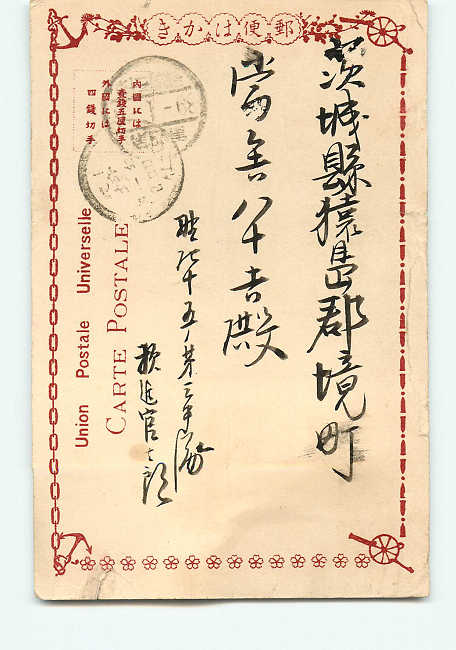 郵便はかき
茨城縣猿島郡境町
八十吉殿
十五ノ第三中隊
内國には
壹錢五厘切手
外國には
四錢切手
Union Postale Universelle
CARTE POSTALE